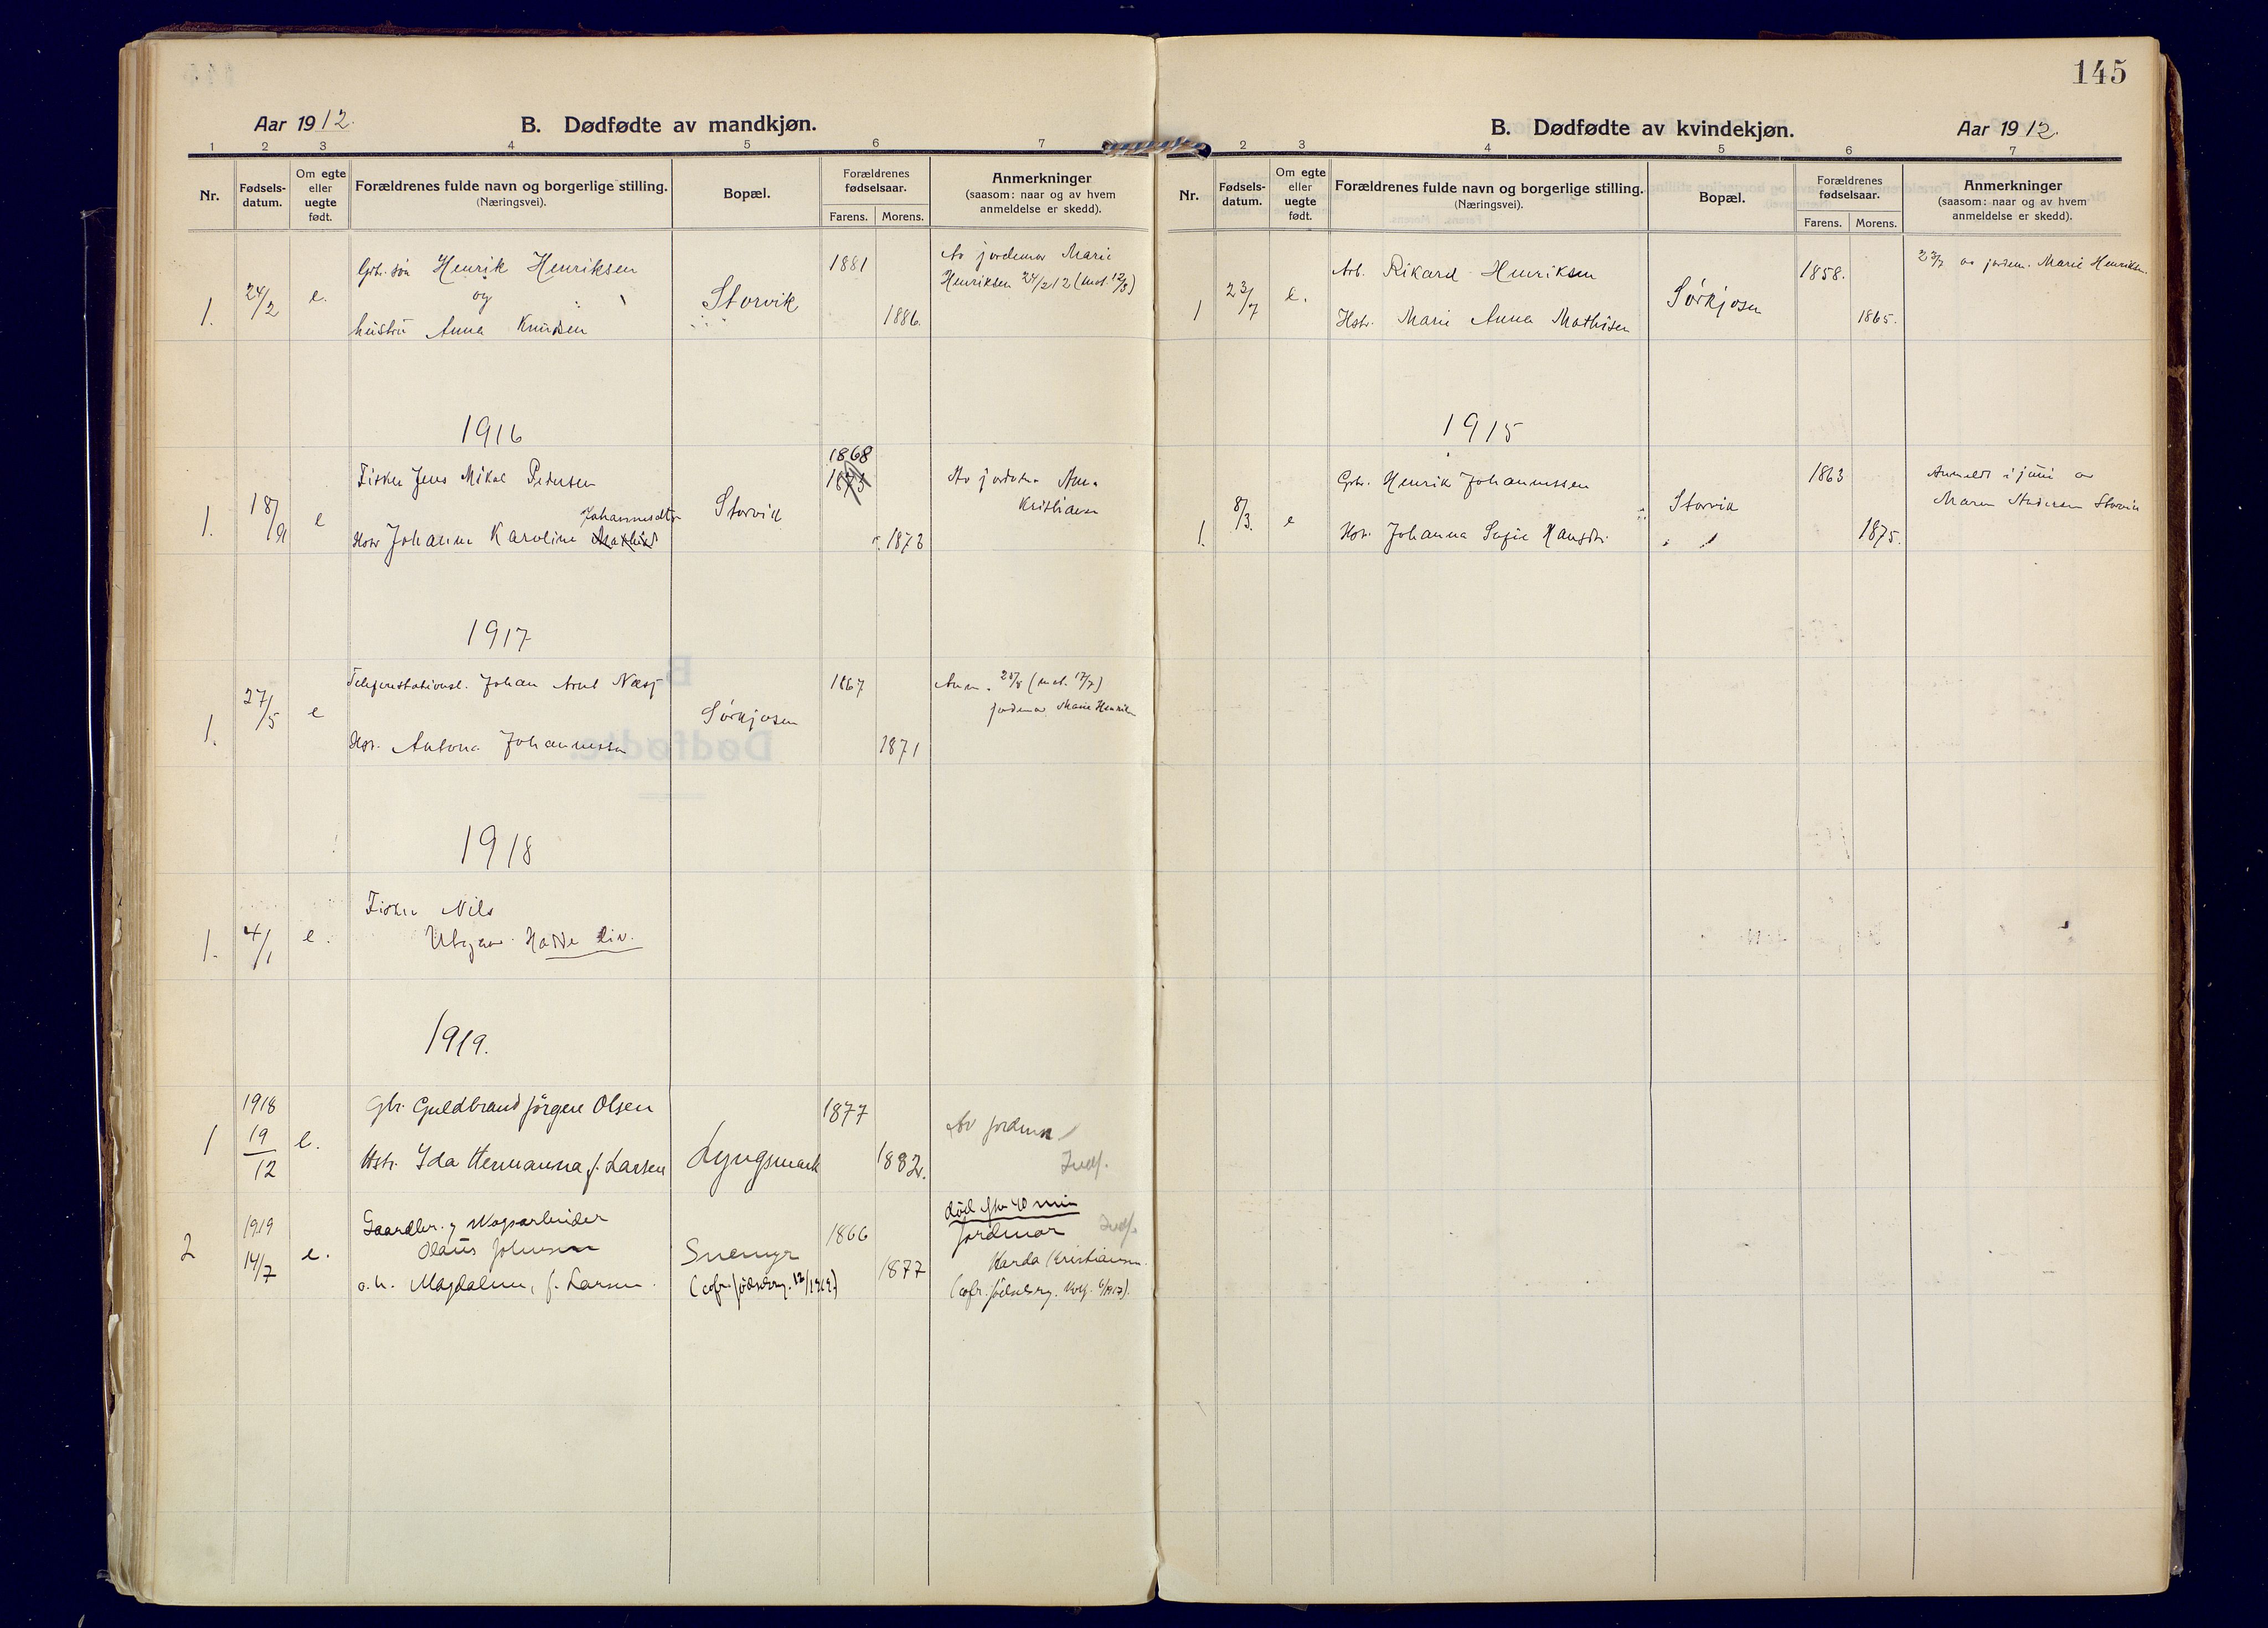 145
Aar 1912.
B. Dødfødte av mandkjøn.
1 2 3 4 5 6 7
Nr.
Fødsels-
datum.
Om egte
eller
uegte
født.
Forældrenes fulde navn og borgerlige stilling.
(Næringsvei).
Bopæl.
Forældrenes
fødselsaar.
Farens. Morens.
Anmerkninger
(saasom: naar og av hvem
anmeldelse er skedd).
1. 24/2 e.
Grbr. søn Henrik Henriksen
og
hustru Anna Knudsen
Storvik
1881
1886.
Av jordemor Marie
Henriksen 24/2 12 (mot. 12/3)
1916
1. 18/9 e
Fisker Jens Mikal Pedersen
Johannesdtr
Hstr Johanna Karoline
Storvik
1868
1873
1873
Av jordem.
Kristiansen
1917
1. 27/5 e
Telefonstationsl. Johan Arnt Næsj
Hstr. Antona Johannessen
Sørkjosen
1867
1871
Anm. (mot. 17/7)
jordemor Marie Henriksen
1918
1. 4/1 e.
Fisker Nils
Utgaar. Hadde liv.
1919.
1 1918 19/12 e.
Gbr. Guldbrand Jørgen Olsen
Hstr. Ida Hermanna f. Larsen
Lyngsmark
1877
1882.
Av jordem
Indf.
2 1919 14/7 e.
Gaardbr. og
Olaus Johnsen
o.h. Magdalene, f. Larsen.
Snemyr
(cfr. fødselsreg. 12/1919.)
1866
1877
død efter 40 min
Jordmor Indf.
Harda Kristiansen.
(cfr. fødselsreg.
B. Dødfødte av kvindekjøn.
Aar 1912.
2 3 4 5 6 7
Nr.
Fødsels-
datum.
Om egte
eller
uegte
født.
Forældrenes fulde navn og borgerlige stilling.
(Næringsvei).
Bopæl.
Forældrenes
fødselsaar.
Farens. Morens.
Anmerkninger
(saasom: naar og av hvem
anmeldelse er skedd).
1 23/7 e.
Arb. Rikard Henriksen
Hstr. Marie Anna Mathisen
Sørkjosen
1858.
1865.
23/7 av jordem. Marie Henriksen.
1915
1. 8/3. e
Grbr. Henrik Johannessen
Hstr. Johanna Sofie Hansdtr.
Storvik
1863
1875.
Anmeldt i juni av
Maren Andersen Storvik